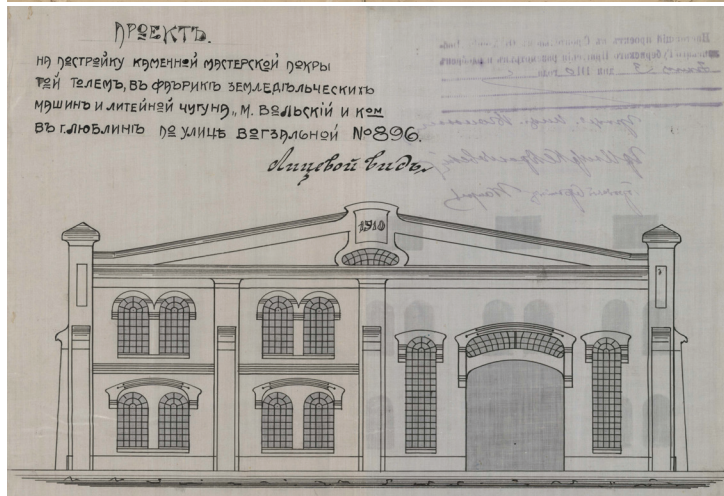 ПРОЕКТЪ.
НА ПОСТРОЙКУ КАМЕННОЙ МАСТЕРСКОЙ ПОКРЫ
ТОЙ ТОЛЕМЪ, ВЪ ФАБРИКѢ ЗЕМЛЕДѢЛЬЧЕСКИХЪ
МАШИНЪ И ЛИТЕЙНОЙ ЧУГУНА „М. ВОЛЬСКІЙ И КОМ
ВЪ Г. ЛЮБЛИНѢ ПО УЛИЦѢ ВОГЗАЛЬНОЙ №896.
Лицевой видъ.
1910